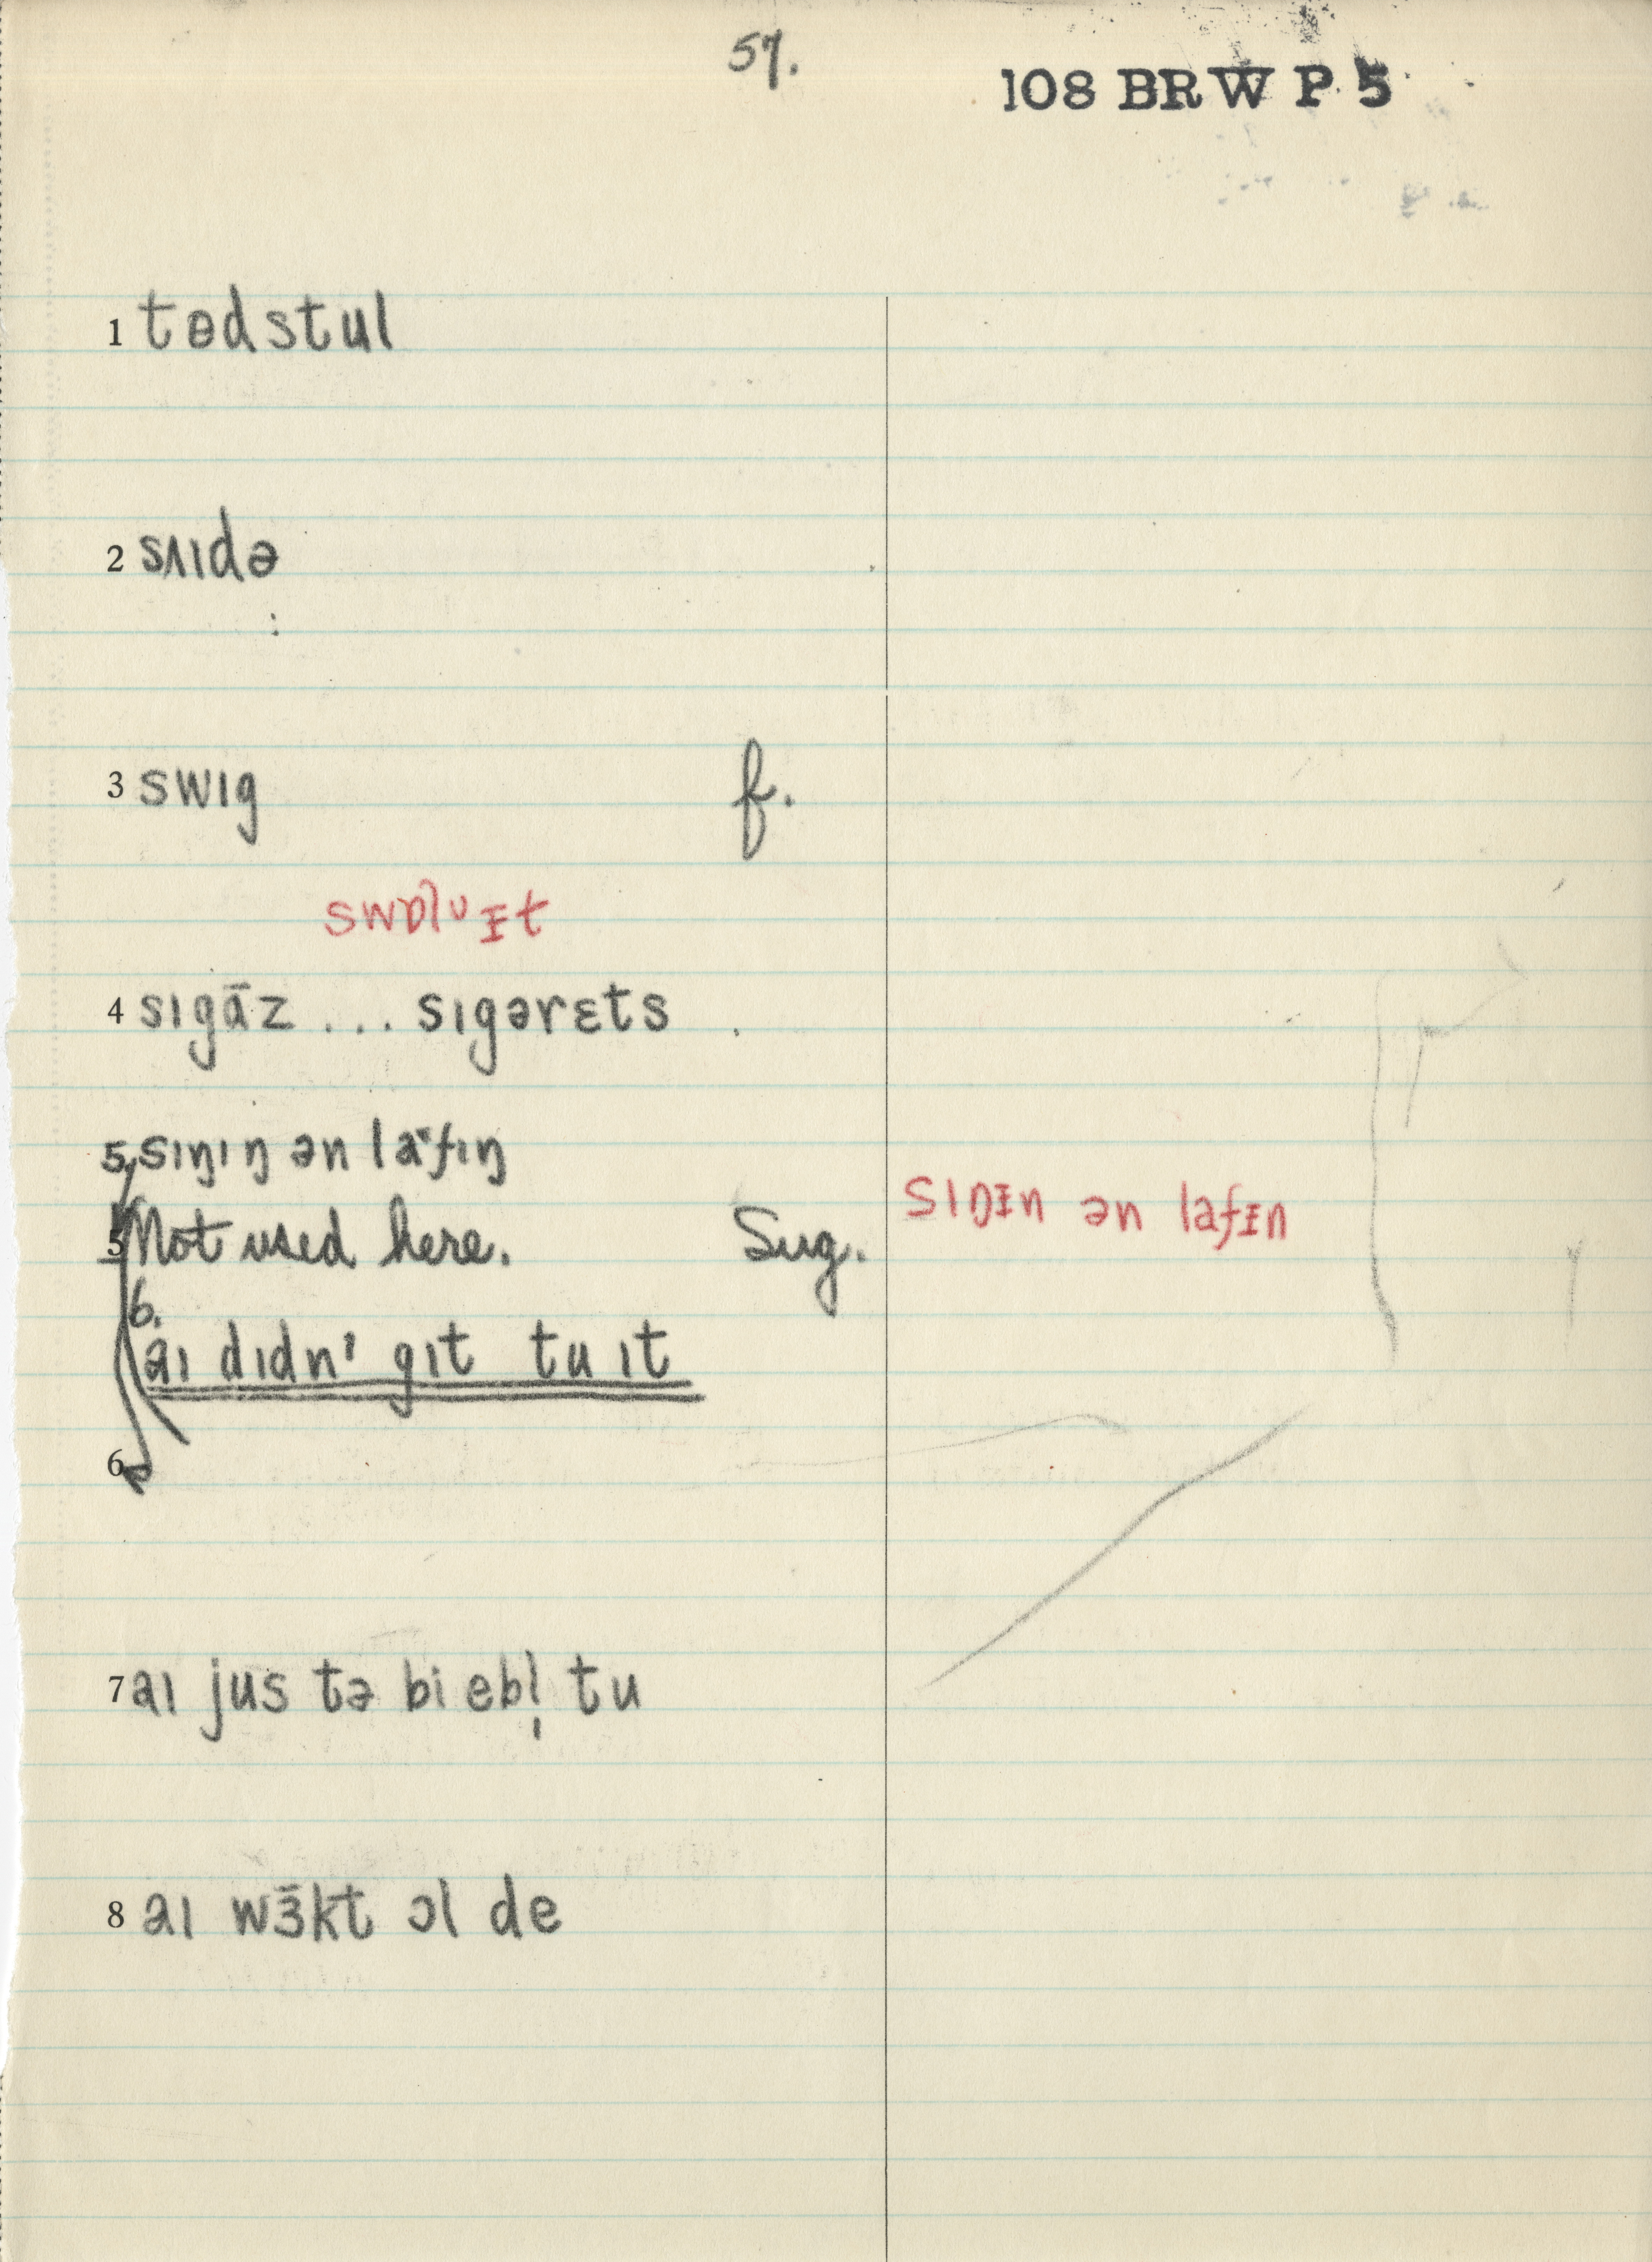 57.
108 BRW P 5
1 tɵdstul
2 sʌɪdə
3 swɪg f.
swɒlᴜɪt
4 sɪgāz ... sɪgərɛts
5, sɪŋɪŋ ən lafɪŋ
sɪŋɪn ən lafɪn
5 Not used here. Sug.
6.
aɪ dɪdn' gɪt tu ɪt
6
7 aɪ jus tə bi ebl̩ tu
8 aɪ wɜ̄kt ɔl de